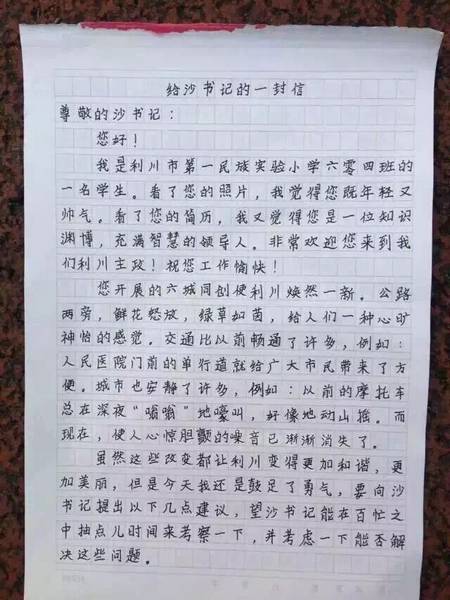 给沙书记的一封信
尊敬的沙书记：
您好！
我是利川市第一民族实验小学六零四班的
一名学生。看了您的照片，我觉得您既年轻又
帅气。看了您的简历，我又觉得您是一位知识
渊博，充满智慧的领导人。非常欢迎您来到我
们利川主政！祝您工作愉快！
您开展的六城同创使利川焕然一新。公路
两旁，鲜花怒放，绿草如茵，给人们一种心旷
神怡的感觉。交通比以前畅通了许多，例如：
人民医院门前的单行道就给广大市民带来了方
便。城市也安静了许多，例如：以前的摩托车
总在深夜“嗡嗡”地嚎叫，好像地动山摇。而
现在，使人心惊胆颤的噪音已渐渐消失了。
虽然这些改变都让利川变得更加和谐，更
加美丽，但是今天我还是鼓足了勇气，要向沙
书记提出以下几点建议，望沙书记能在百忙之
中抽点儿时间来考察一下，并考虑一下能否解
决这些问题。